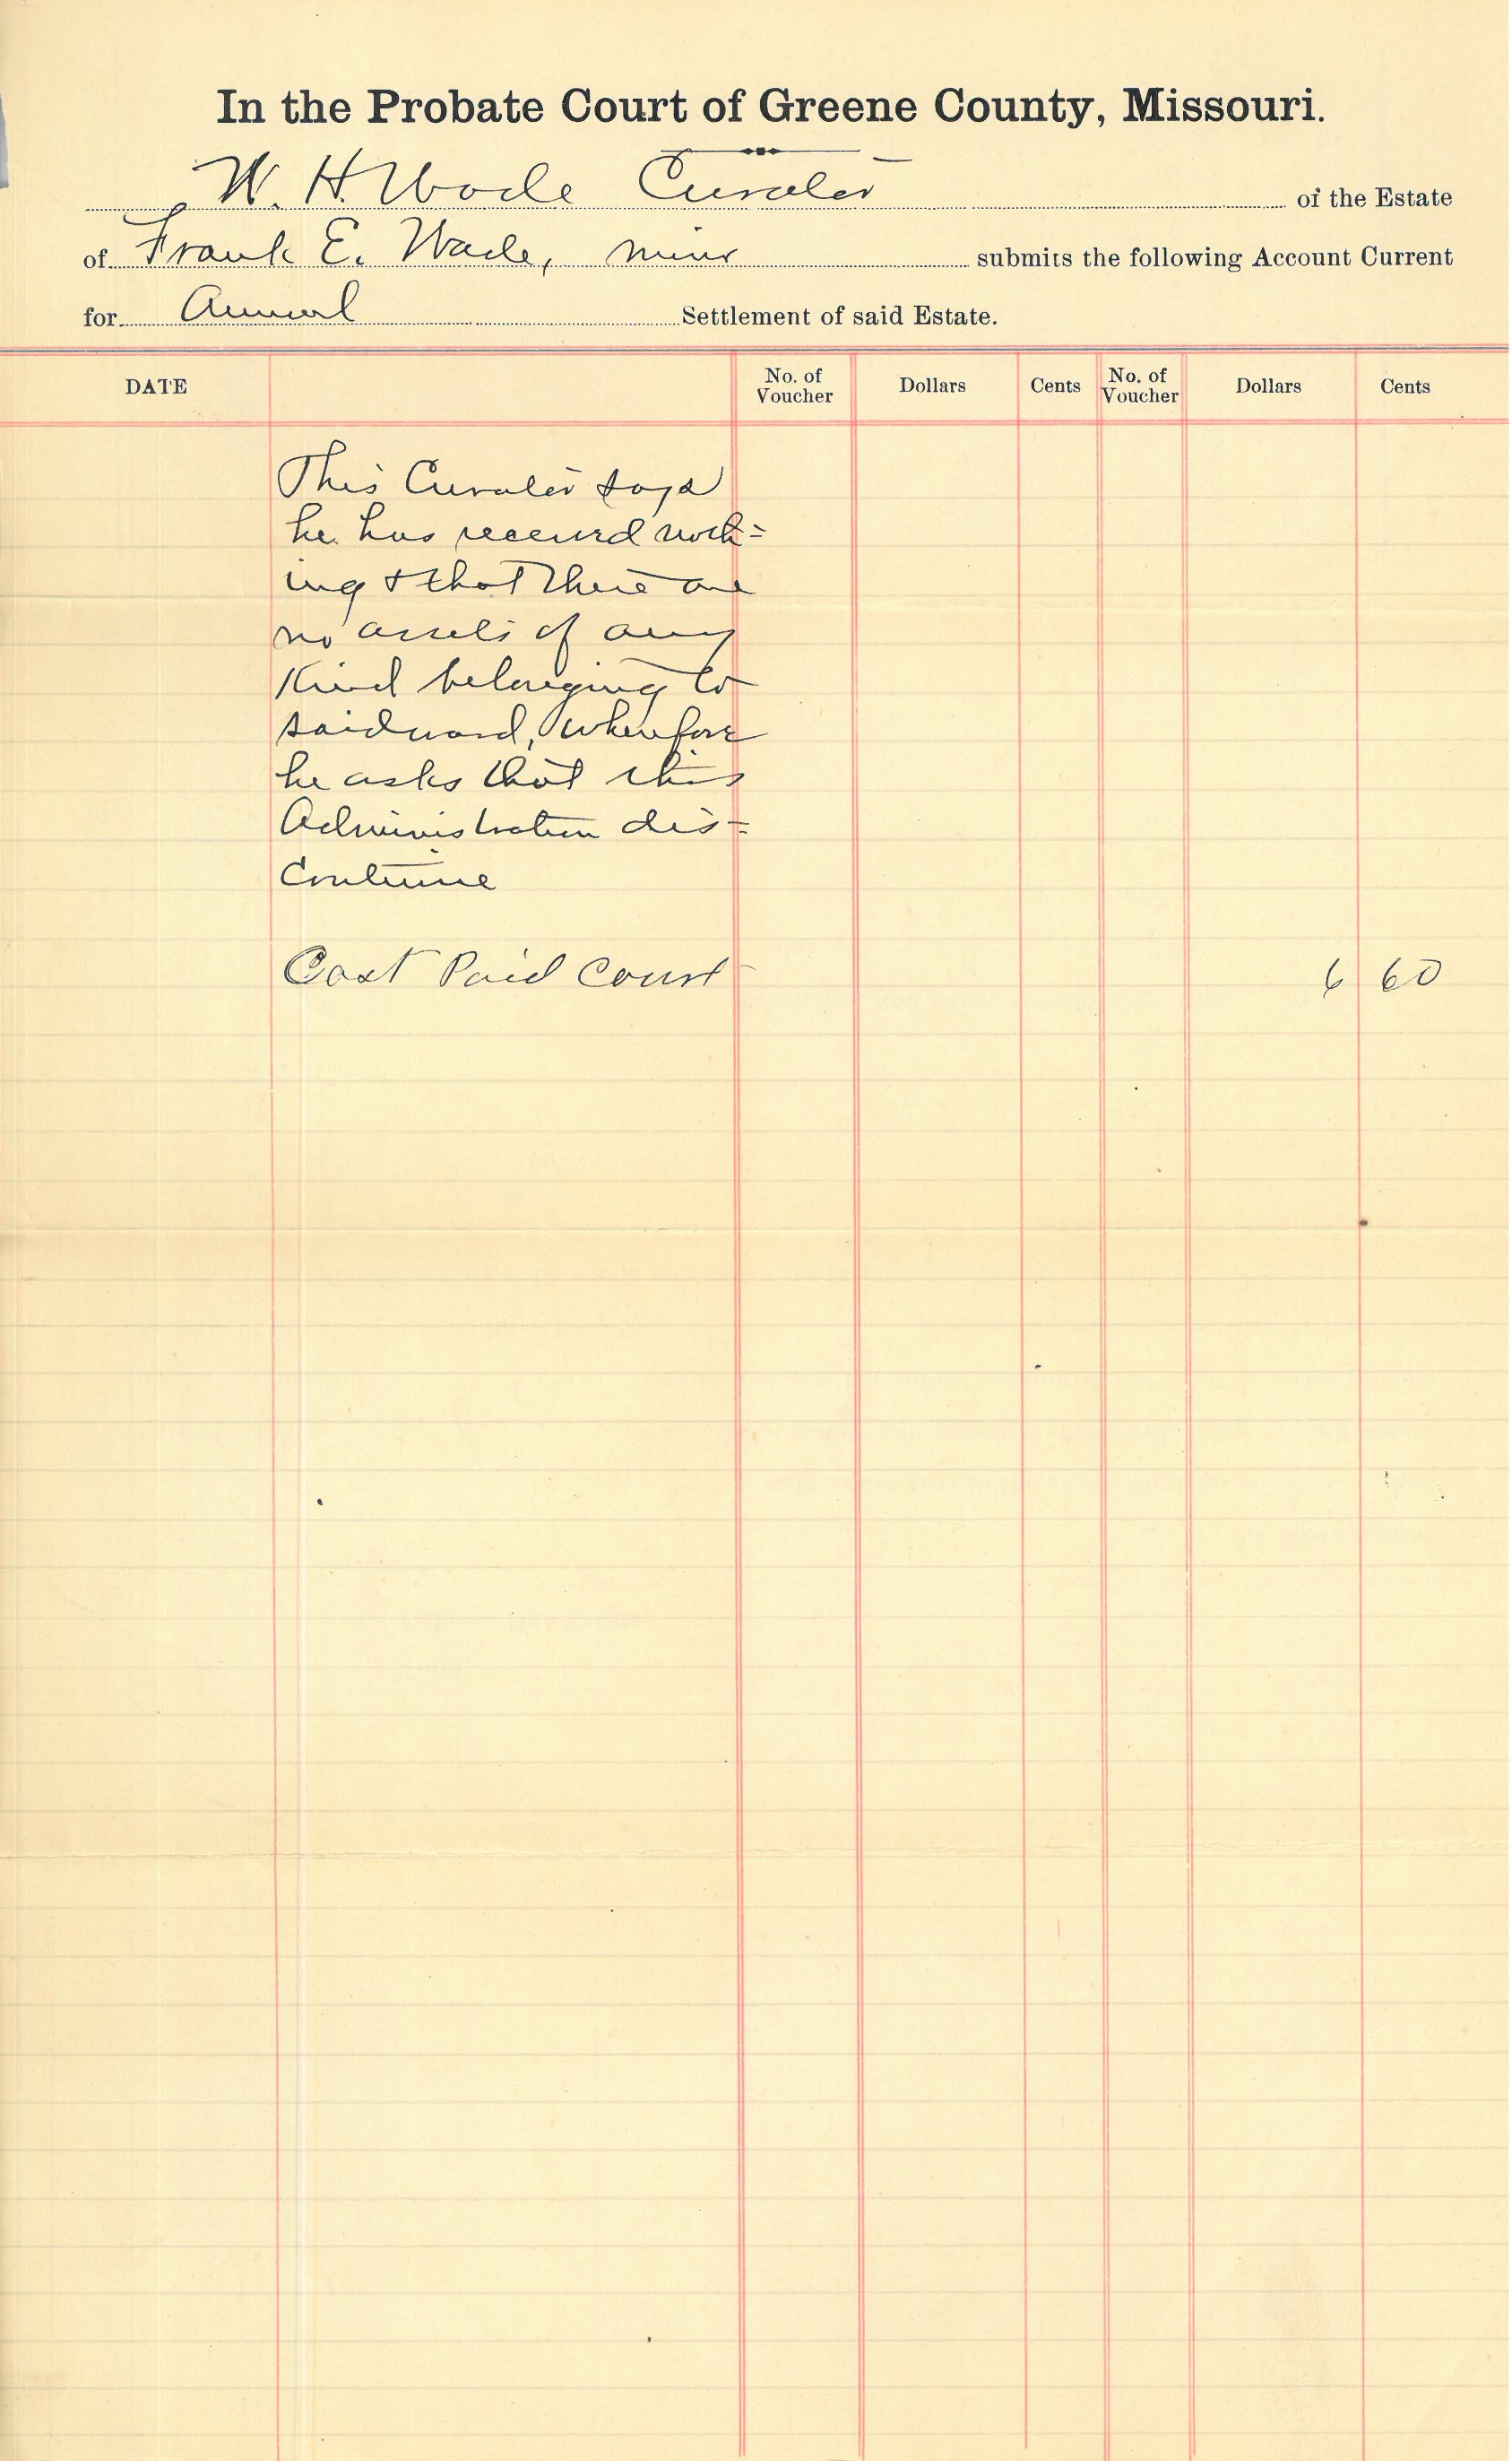 In the Probate Court of Greene County, Missouri.
W. H. Wade Curator of the Estate
of Frank E. Wade, minor submits the following Account Current
for Annual Settlement of said Estate.
DATE No. of Voucher Dollars Cents No. of Voucher Dollars Cents
This Curator says
he has received noth=
ing & that there are
no assets of any
Kind belonging to
said ward, Wherefore
he asks that this
Administration dis=
Continue
Cost Paid Court 6 60